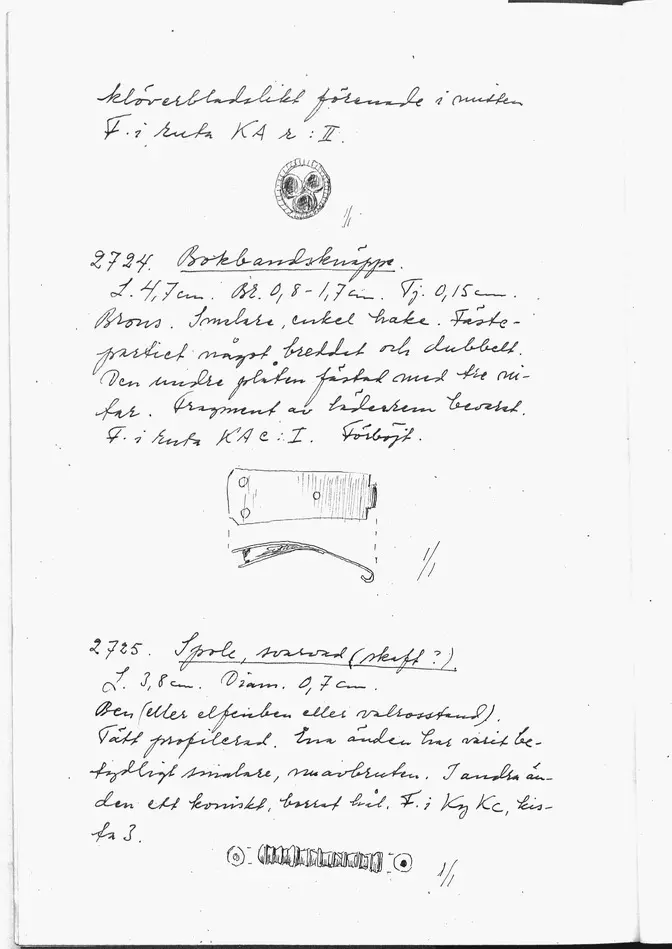 klöverbladslikt förenade i mitten
F. i ruta KA r : II.
1/1
2724. Bokbandsknäppe.
L. 4,7 cm. Br. 0,8-1,7 cm. Tj. 0,15 cm.
Brons. Smalare, enkel hake. Fäste-
partiet något breddat och dubbelt.
Den undre plåten fästad med tre ni-
tar. Fragment av läderrem bevarat.
F. i ruta KA c : I. Förböjt.
1/1
2725. Spole, svarvad (skaft?).
L. 3,8 cm. Diam. 0,7 cm.
Ben (eller elfenben eller valrosstand).
Tätt profilerad. Ena änden har varit be-
tydligt smalare, nu avbruten. I andra än-
den ett koniskt, borrat hål. F. i Ky Kc, kis-
ta 3.
1/1